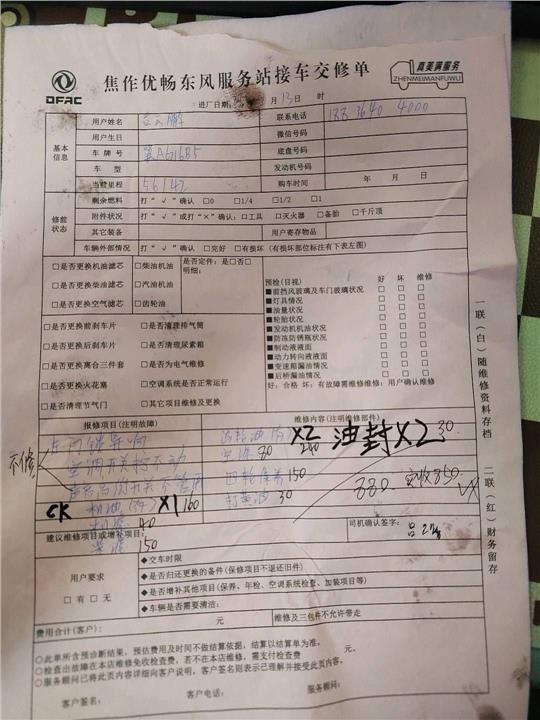 DFAC
焦作优畅东风服务站接车交修单
真美满服务
ZHENMEIMANFUWU
进厂日期: 月 13 日 时
基本信息
用户姓名
联系电话 4000
用户生日 微信号码
车牌号 底盘号码
车型 发动机号码
当前里程 56142 购车时间 年 月 日
修前状态
剩余燃料 打“√”确认 □0 □1/4 □1/2 □1
附件状况 打“√”或打“×”确认: □工具 □灭火器 □备胎 □千斤顶
其它装备 用户寄存物品
车辆外部情况 打“√”确认 □完好 □有损坏 (有损坏部位标注有下表左图)
□是否更换机油滤芯 □柴油机油
□是否更换柴油滤芯 □汽油机油
□是否更换空气滤芯 □齿轮油
是否定件: 是□否□
明细:
□是否更换前刹车片 □是否清理排气筒
□是否更换后刹车片 □是否清理尿素箱
□是否更换离合三件套 □是否为电气维修
□是否更换火花塞 □空调系统是否正常运行
□是否清理节气门 □其它项目维修及更换
预检(目视) 好 坏 维修
■前挡风玻璃及车门玻璃状况 □ □ □
■灯具情况 □ □ □
■油量状况 □ □ □
■轮胎状况 □ □ □
■发动机机油状况 □ □ □
■防冻防锈瓶状况 □ □ □
■制动液液面 □ □ □
■动力转向液液面 □ □ □
■变速箱漏油情况 □ □ □
■后桥漏油情况 □ □ □
好: 合格 坏: 有故障需维修维修: 用户确认维修
报修项目(注明故障) 维修内容(注明维修部件)
不修
空调开关拧不动
X2 240
油封X2 30
80
四轮保养 150
打黄油 30
880 实收850
CK 机油 X1 160
机滤 40
150
建议维修项目或增补项目:
司机确认签字:
用户要求
□有 □无
◆交车时限
◆是否归还更换的备件(保修项目不退还旧件)
◆是否增补其他项目(保养、年检、空调系统检查、加装项目等)
◆车辆是否需要清洁:
费用合计(客户): 元 维修及三包件不允许带走
○此单所含预诊断结果,预估费用及时间不做结算依据,结算以结算单为准。
○检查出故障在本店维修免收检查费,若不在本店维修,需支付检查费 元。
○服务顾问已将此页内容详细向客户说明,客户签名则表示已理解并接受此页内容。
客户签名: 客户电话: 服务顾问:
一联(白)随维修资料存档
二联(红)财务留存